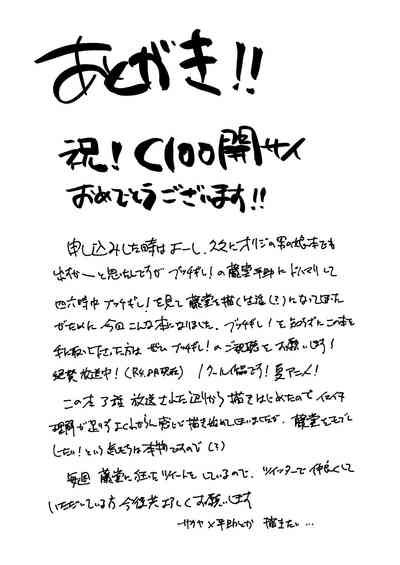 あとがき!!
祝!C100開サイ
おめでとうございます!!
申し込みした時はよーし、久々にオリジの男の娘本でも
出すかーと思ったんですが ブッチギレ!の藤堂平助にドハマりして
四六時中 ブッチギレ!を見て 藤堂を描く生活(?)になってしまった
がために 今回こんな本になりました。ブッチギレ!を知らずにこの本を
手に取ってくださった方は ぜひブッチギレ!のご視聴をお願いします!
絶賛放送中!(R4.8月現在) 1クール作品です!夏アニメ!
この本 3話 放送された辺りから 描きはじめたので イマイチ
理解が足りずよくわからん感じで描き始めてしまいましたが、藤堂をモブし
たい!という気持ちは本物ですので(?)
毎週 藤堂に狂ったツイートをしているので、ツイッターで仲良くして
いただいている方 今後共よろしくお願いします
サクヤ×平助とか 描きたい…